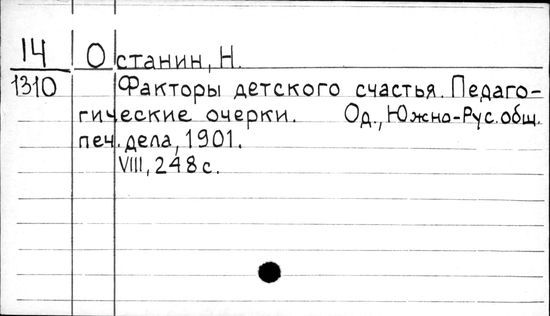 14 Останин, Н.
1310 Факторы детского счастья. Педаго-
гические очерки. Од., Южно-Рус. общ.
печ. дела, 1901.
VIII, 248 с.